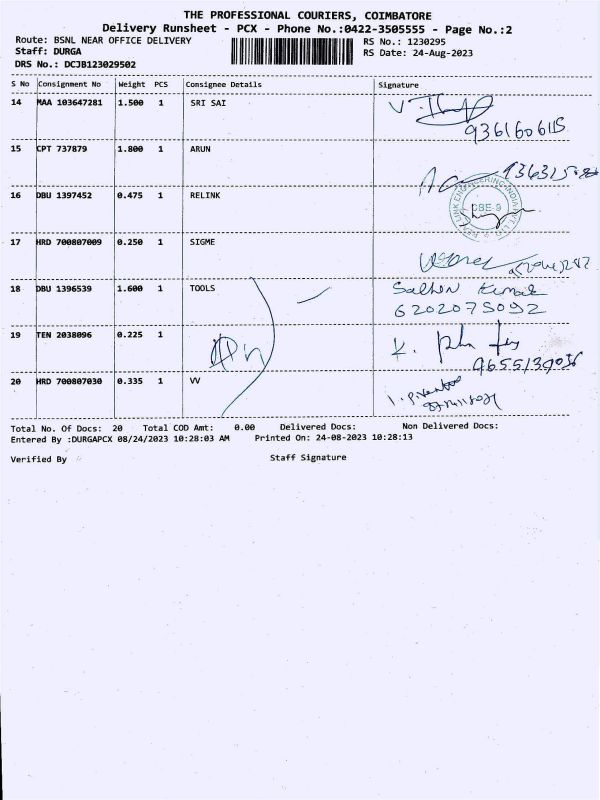 THE PROFESSIONAL COURIERS, COIMBATORE
Delivery Runsheet - PCX - Phone No.:0422-3505555 - Page No.:2
Route: BSNL NEAR OFFICE DELIVERY RS No.: 1230295
Staff: DURGA RS Date: 24-Aug-2023
DRS No.: DCJB123029502
S No Consignment No Weight PCS Consignee Details Signature
14 MAA 103647281 1.500 1 SRI SAI
9361606115
15 CPT 737879 1.800 1 ARUN
16 DBU 1397452 0.475 1 RELINK
CBE-9
17 HRD 700807009 0.250 1 SIGME
18 DBU 1396539 1.600 1 TOOLS
Kumar
6202075092
19 TEN 2038096 0.225 1
K.
20 HRD 700807030 0.335 1 VV
Total No. Of Docs: 20 Total COD Amt: 0.00 Delivered Docs: Non Delivered Docs:
Entered By :DURGAPCX 08/24/2023 10:28:03 AM Printed On: 24-08-2023 10:28:13
Verified By Staff Signature